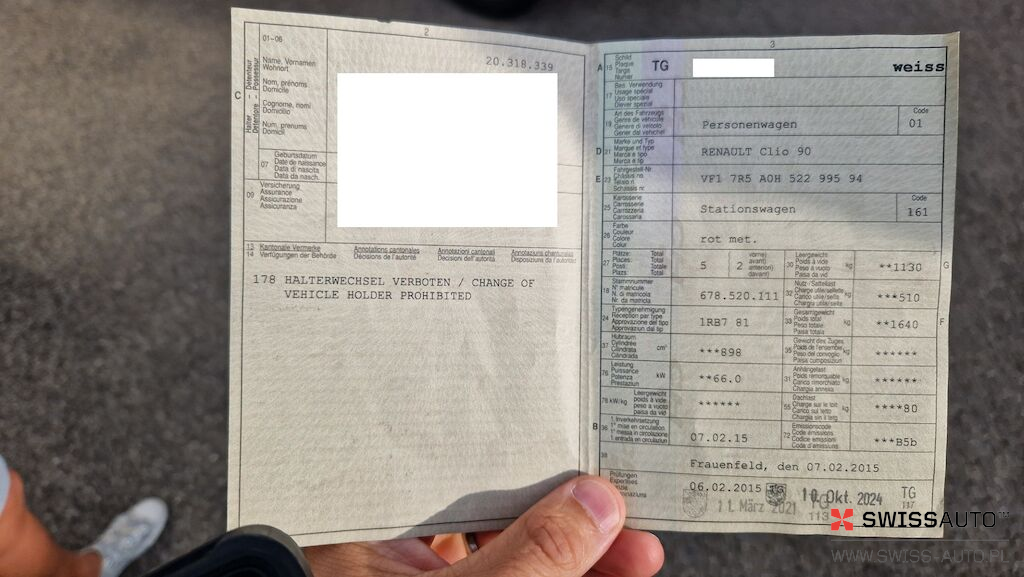 2
01-06
20.318.339
Détenteur
Possesseur
Halter
Detentore
C
Name, Vornamen
Wohnort
Nom, prénoms
Domicile
Cognome, nomi
Domicilio
Num, prenums
Domicil
07
Geburtsdatum
Date de naissance
Data di nascita
Data da nasch.
09
Versicherung
Assurance
Assicurazione
Assicuranza
13
14
Kantonale Vermerke
Verfügungen der Behörde
Annotations cantonales
Décisions de l'autorité
Annotazioni cantonali
Decisioni dell'autorità
Annotaziuns chantunalas
Disposiziuns da l'autoritad
178 HALTERWECHSEL VERBOTEN / CHANGE OF
VEHICLE HOLDER PROHIBITED
3
A 15
Schild
Plaque
Targa
Numer
TG
weiss
17
Bes. Verwendung
Usage spécial
Uso speciale
Diever spezial
19
Art des Fahrzeugs
Genre de véhicule
Genere di veicolo
Gener dal vehichel
Personenwagen
Code
01
D 21
Marke und Typ
Marque et type
Marca e tipo
Marca e tip
RENAULT Clio 90
E 23
Fahrgestell-Nr.
Châssis no.
Telaio n.
Schassis nr.
VF1 7R5 A0H 522 995 94
25
Karosserie
Carrosserie
Carrozzeria
Carossaria
Stationswagen
Code
161
26
Farbe
Couleur
Colore
Colur
rot met.
27
Plätze: Total
Places: Total
Posti: Totale
Plazs: Total
5
2
vorne)
avant)
anteriori)
davant)
30
Leergewicht
Poids à vide
Peso a vuoto
Paisa da vid
kg
**1130
G
18
Stammnummer
N° matricule
N. di matricola
Nr. da matricla
678.520.111
32
Nutz-/Sattellast
Charge utile/sellette
Carico utile/sella
Chargia utila/sella
kg
***510
24
Typengenehmigung
Réception par type
Approvazione del tipo
Approvaziun dal tip
1RB7 81
33
Gesamtgewicht
Poids total
Peso totale
Paisa totala
kg
**1640
F
37
Hubraum
Cylindrée
Cilindrata
Cilindrada
cm³
***898
35
Gewicht des Zuges
Poids de l'ensemble
Peso del convoglio
Paisa cumposiziun
kg
******
76
Leistung
Puissance
Potenza
Prestaziun
kW
**66.0
31
Anhängelast
Poids remorquable
Carico rimorchiato
Chargia annexa
kg
******
78 kW/kg
Leergewicht
poids à vide
peso a vuoto
paisa da vid
******
55
Dachlast
Charge sur le toit
Carico sul tetto
Chargia sin il tetg
kg
****80
B 36
1. Inverkehrsetzung
1re mise en circulation
1a messa in circolazione
1. entrada en circulaziun
07.02.15
72
Emissionscode
Code émissions
Codice emissioni
Code d'emissiuns
***B5b
38
Frauenfeld, den 07.02.2015
Prüfungen
Expertises
06.02.2015
TG
11. März 2021
TG
113
10. Okt. 2024
TG
137
SWISSAUTO
WWW.SWISS-AUTO.PL